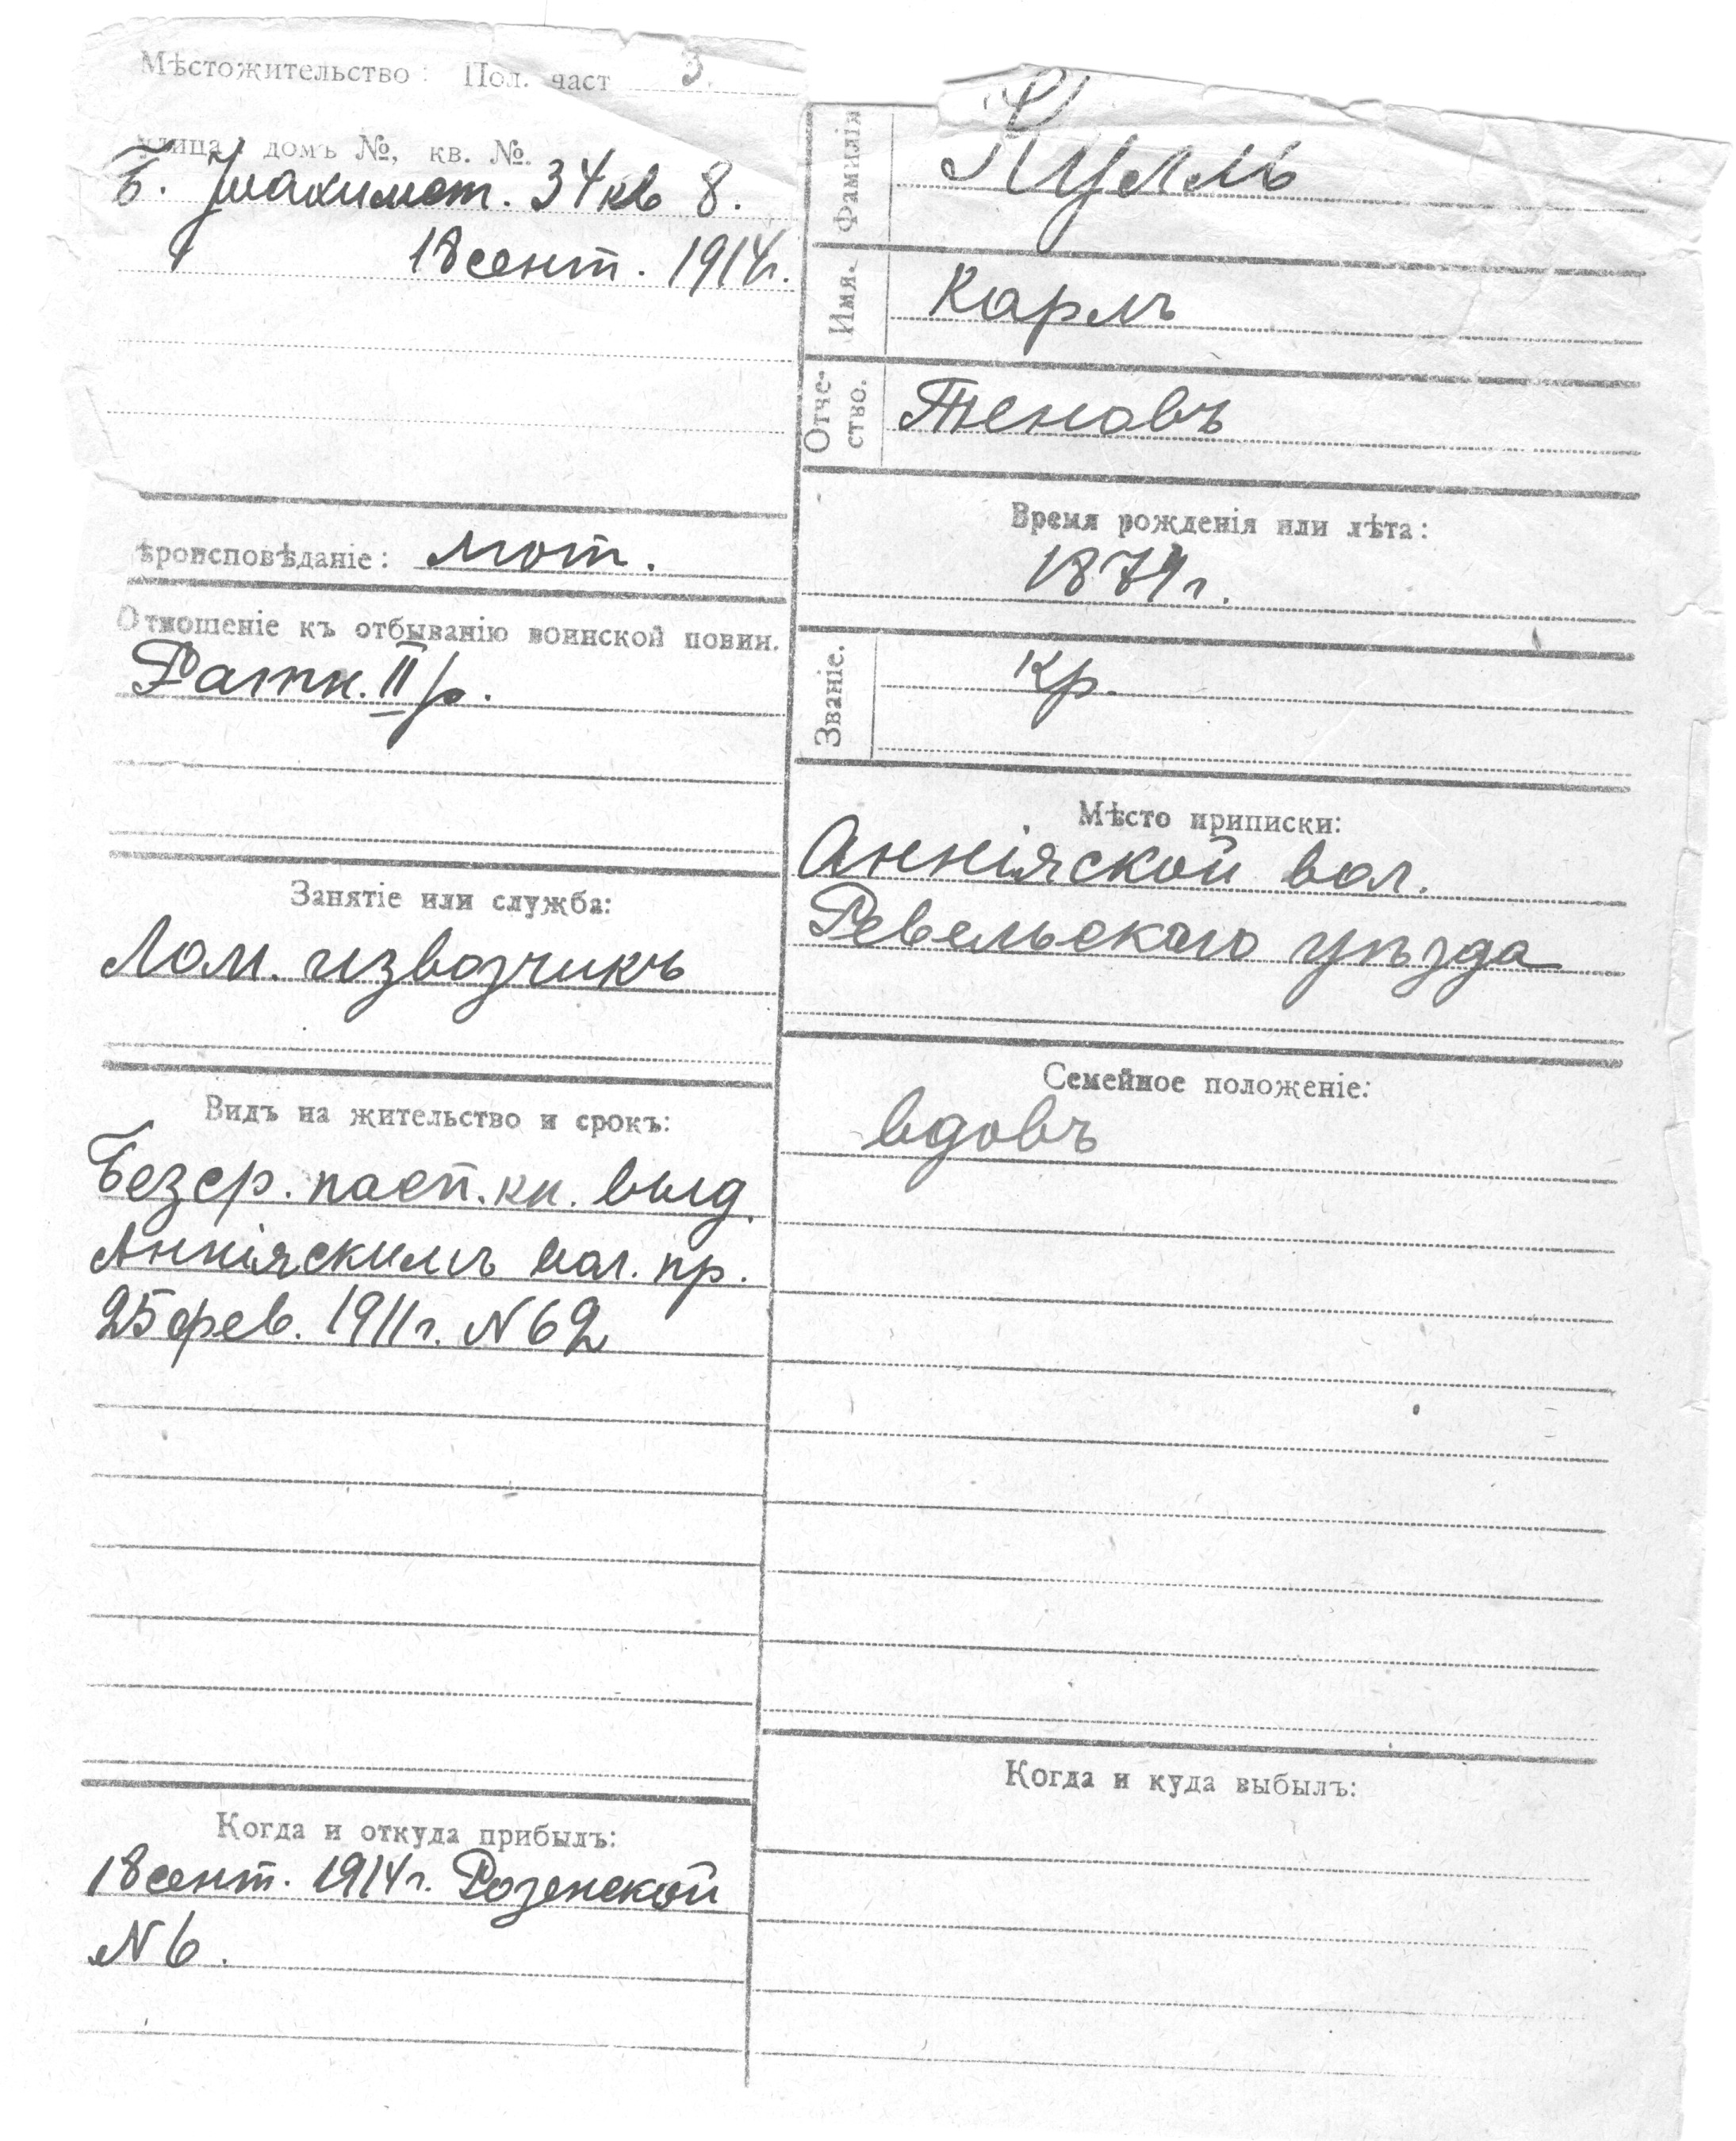 Мѣстожительство: Пол. част 3.
улица, домъ №, кв. №.
Б. 34 кв 8.
18 сент. 1914г.
ѣроисповѣданіе: лют.
Отношеніе къ отбыванію воинской повин.
Ратн. II р.
Занятіе или служба:
Лом. извозчикъ
Видъ на жительство и срокъ:
Безср. пасп. кн. выд.
Анніяскимъ вол. пр.
25 фев. 1911г. N 62
Когда и откуда прибылъ:
18 сент. 1914г. Розенской
N 6.
Фамилія
Кулль
Имя.
Карлъ
Отче-
ство.
Теновъ
Время рожденія или лѣта:
1874г.
Званіе.
кр.
Мѣсто приписки:
Анніяской вол.
Ревельскаго уѣзда
Семейное положеніе:
вдовъ
Когда и куда выбылъ: